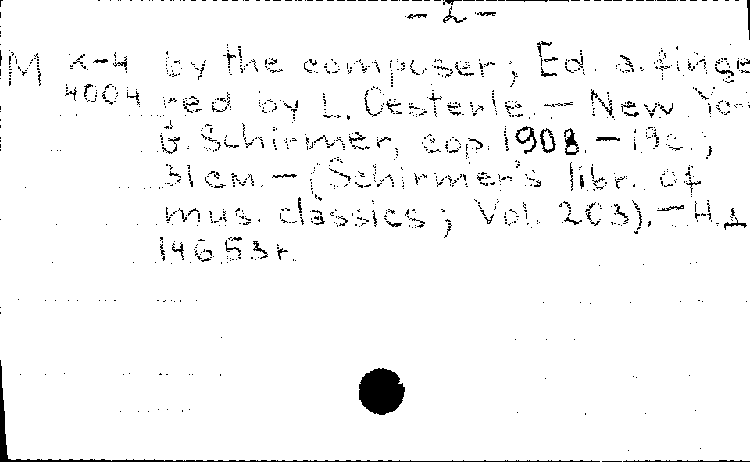 - 2 -
M x-4 by the composer; Ed. a. finge
4004 red by L. Oesterle. - New Yo
G. Schirmer, cop. 1908. - 19c.;
31см. - (Schirmer's libr. of
mus. classics; Vol. 203). - Н.д.
14653г.